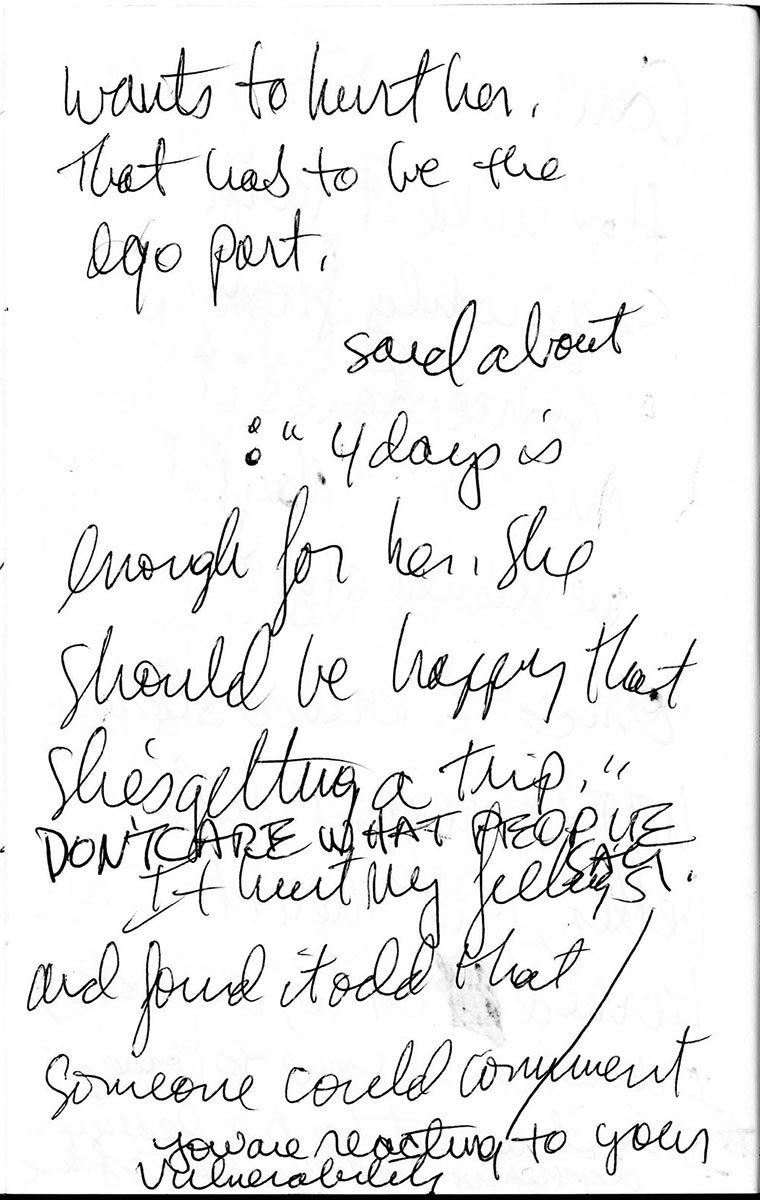 wants to hurt her.
That has to be the
ego part.
said about
: " 4 days is
enough for her. She
should be happy that
She's getting a trip."
DON'T CARE WHAT PEOPLE
SAY.
It hurt my feelings
and found it odd that
someone could comment
you are reacting to your
vulnerability